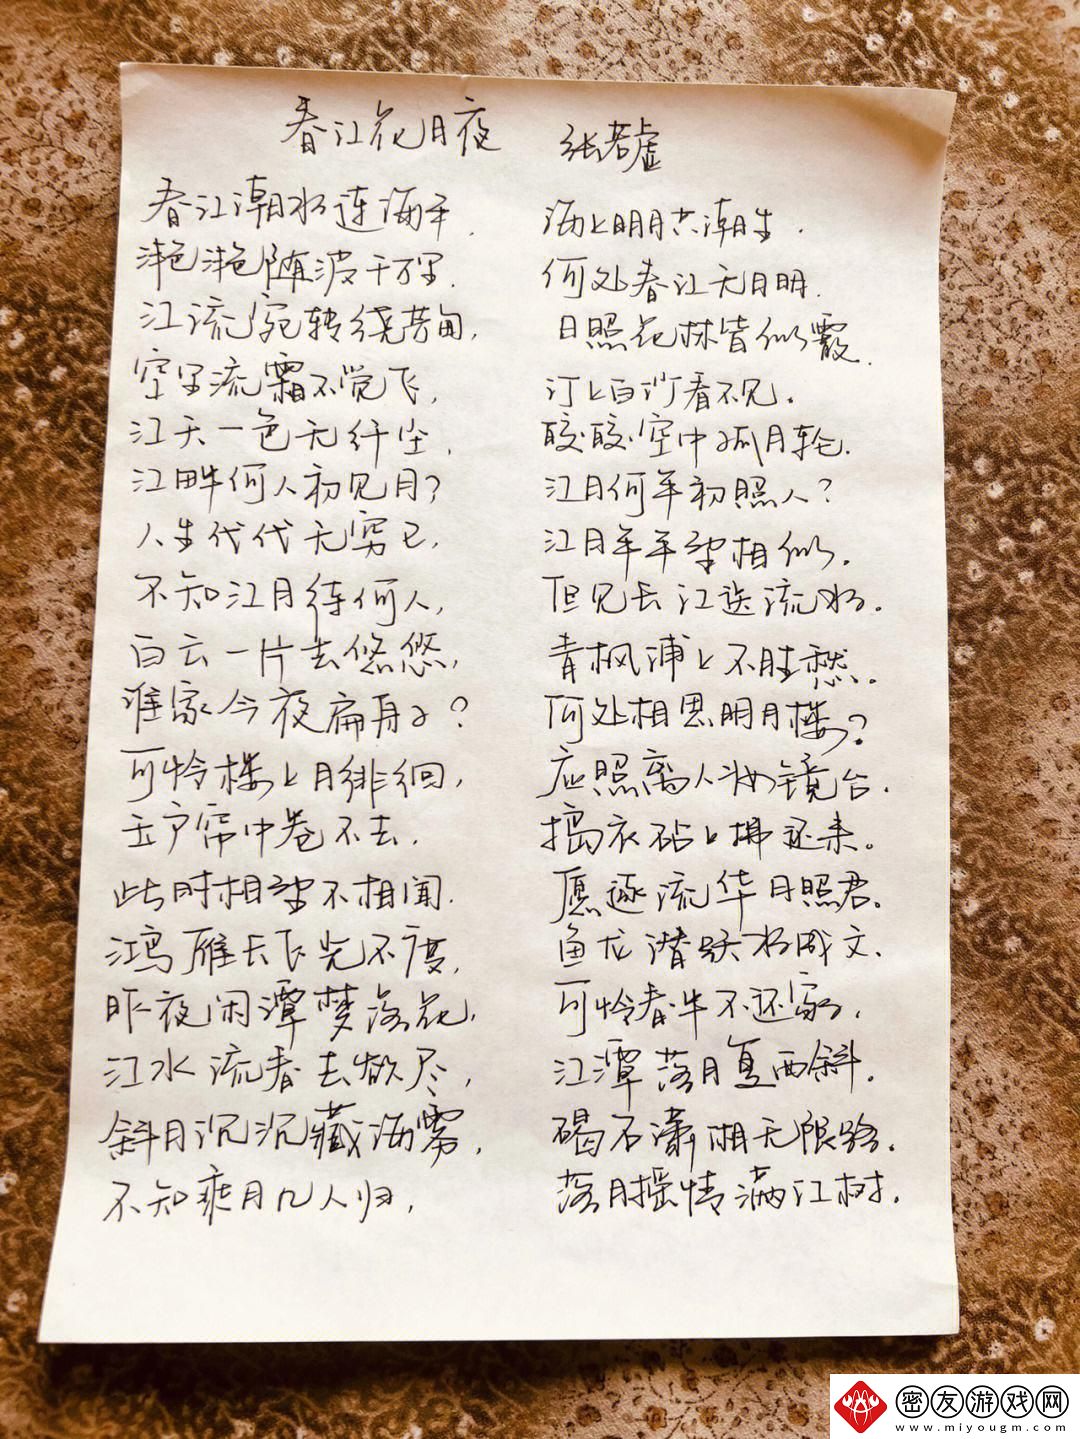 春江花月夜 张若虚
春江潮水连海平, 海上明月共潮生.
滟滟随波千万里. 何处春江无月明.
江流宛转绕芳甸, 月照花林皆似霰.
空里流霜不觉飞, 汀上白沙看不见.
江天一色无纤尘, 皎皎空中孤月轮.
江畔何人初见月? 江月何年初照人?
人生代代无穷已, 江月年年望相似.
不知江月待何人, 但见长江送流水.
白云一片去悠悠, 青枫浦上不胜愁.
谁家今夜扁舟子? 何处相思明月楼?
可怜楼上月徘徊, 应照离人妆镜台.
玉户帘中卷不去. 捣衣砧上拂还来.
此时相望不相闻. 愿逐流华月照君.
鸿雁长飞光不度, 鱼龙潜跃水成文.
昨夜闲潭梦落花, 可怜春半不还家.
江水流春去欲尽, 江潭落月复西斜.
斜月沉沉藏海雾, 碣石潇湘无限路.
不知乘月几人归, 落月摇情满江树.
密友游戏网
www.miyougm.com